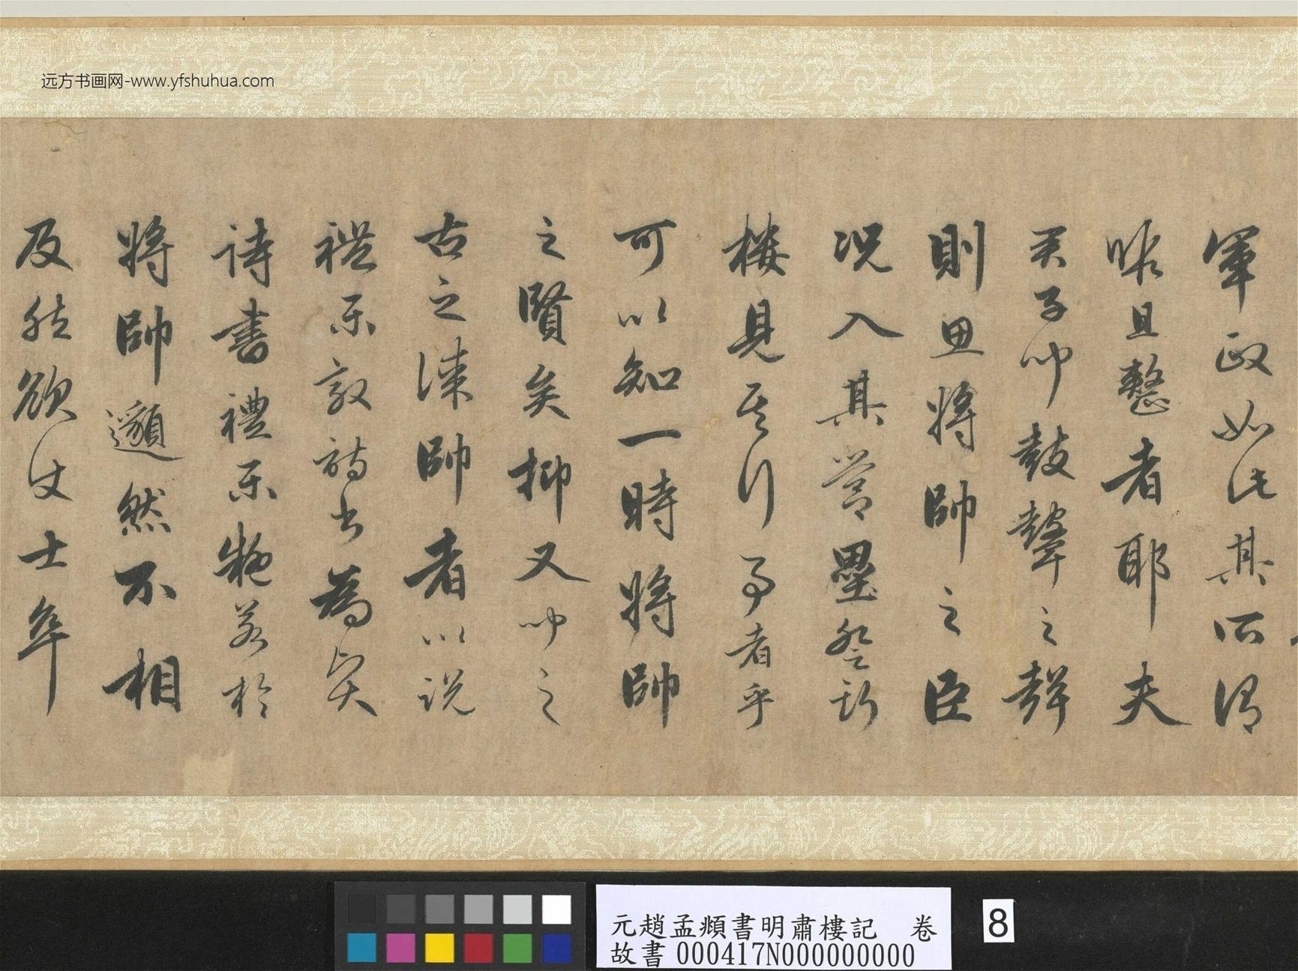 远方书画网-www.yfshuhua.com
軍政如此其所謂
暇且整者耶夫
君子聞鼓鼙之聲
則思將帥之臣
況入其營壘登斯
樓見其行事者乎
可以知一時將帥
之賢矣抑又聞之
古之謀帥者以說
禮樂敦詩書為賢
詩書禮樂施若於
將帥邈然不相
及然欲使士卒
元趙孟頫書明肅樓記 卷
故書 000417N000000000
8